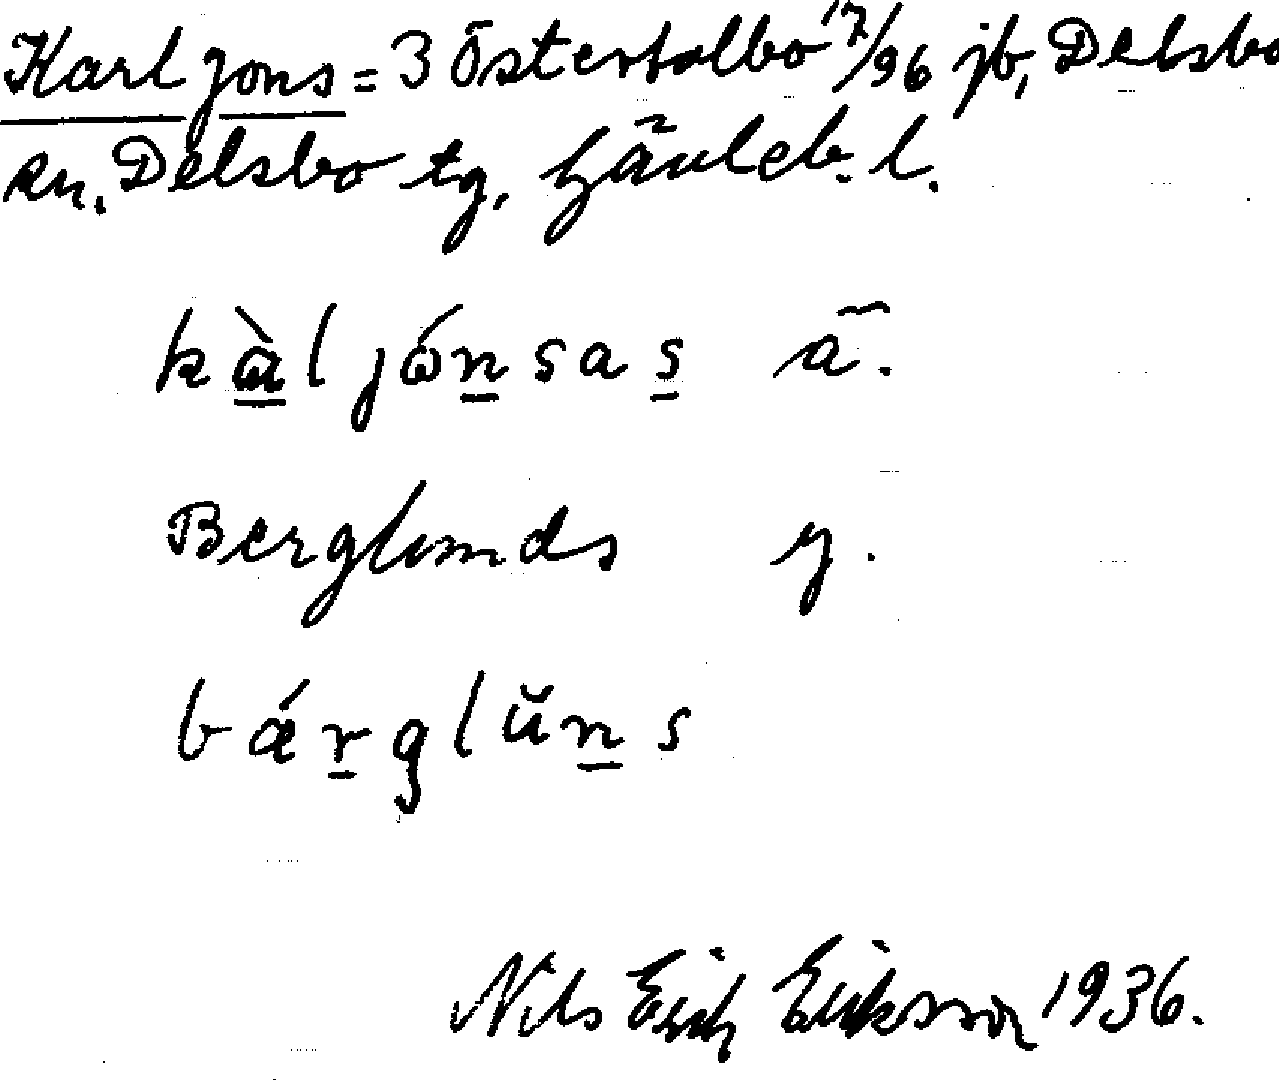 Karl Jons = 3 Österfolbo 17/96 jb, Delsbo
sn. Delsbo tg, Gävleb. l.
kàljónsas ä.
Berglunds y.
bárglŭns
Nils Erik Eriksson 1936.